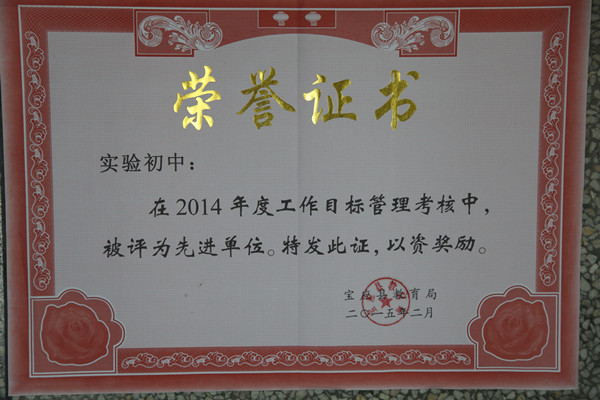 荣誉证书
实验初中：
在2014年度工作目标管理考核中，
被评为先进单位。特发此证，以资奖励。
宝应县教育局
二〇一五年二月